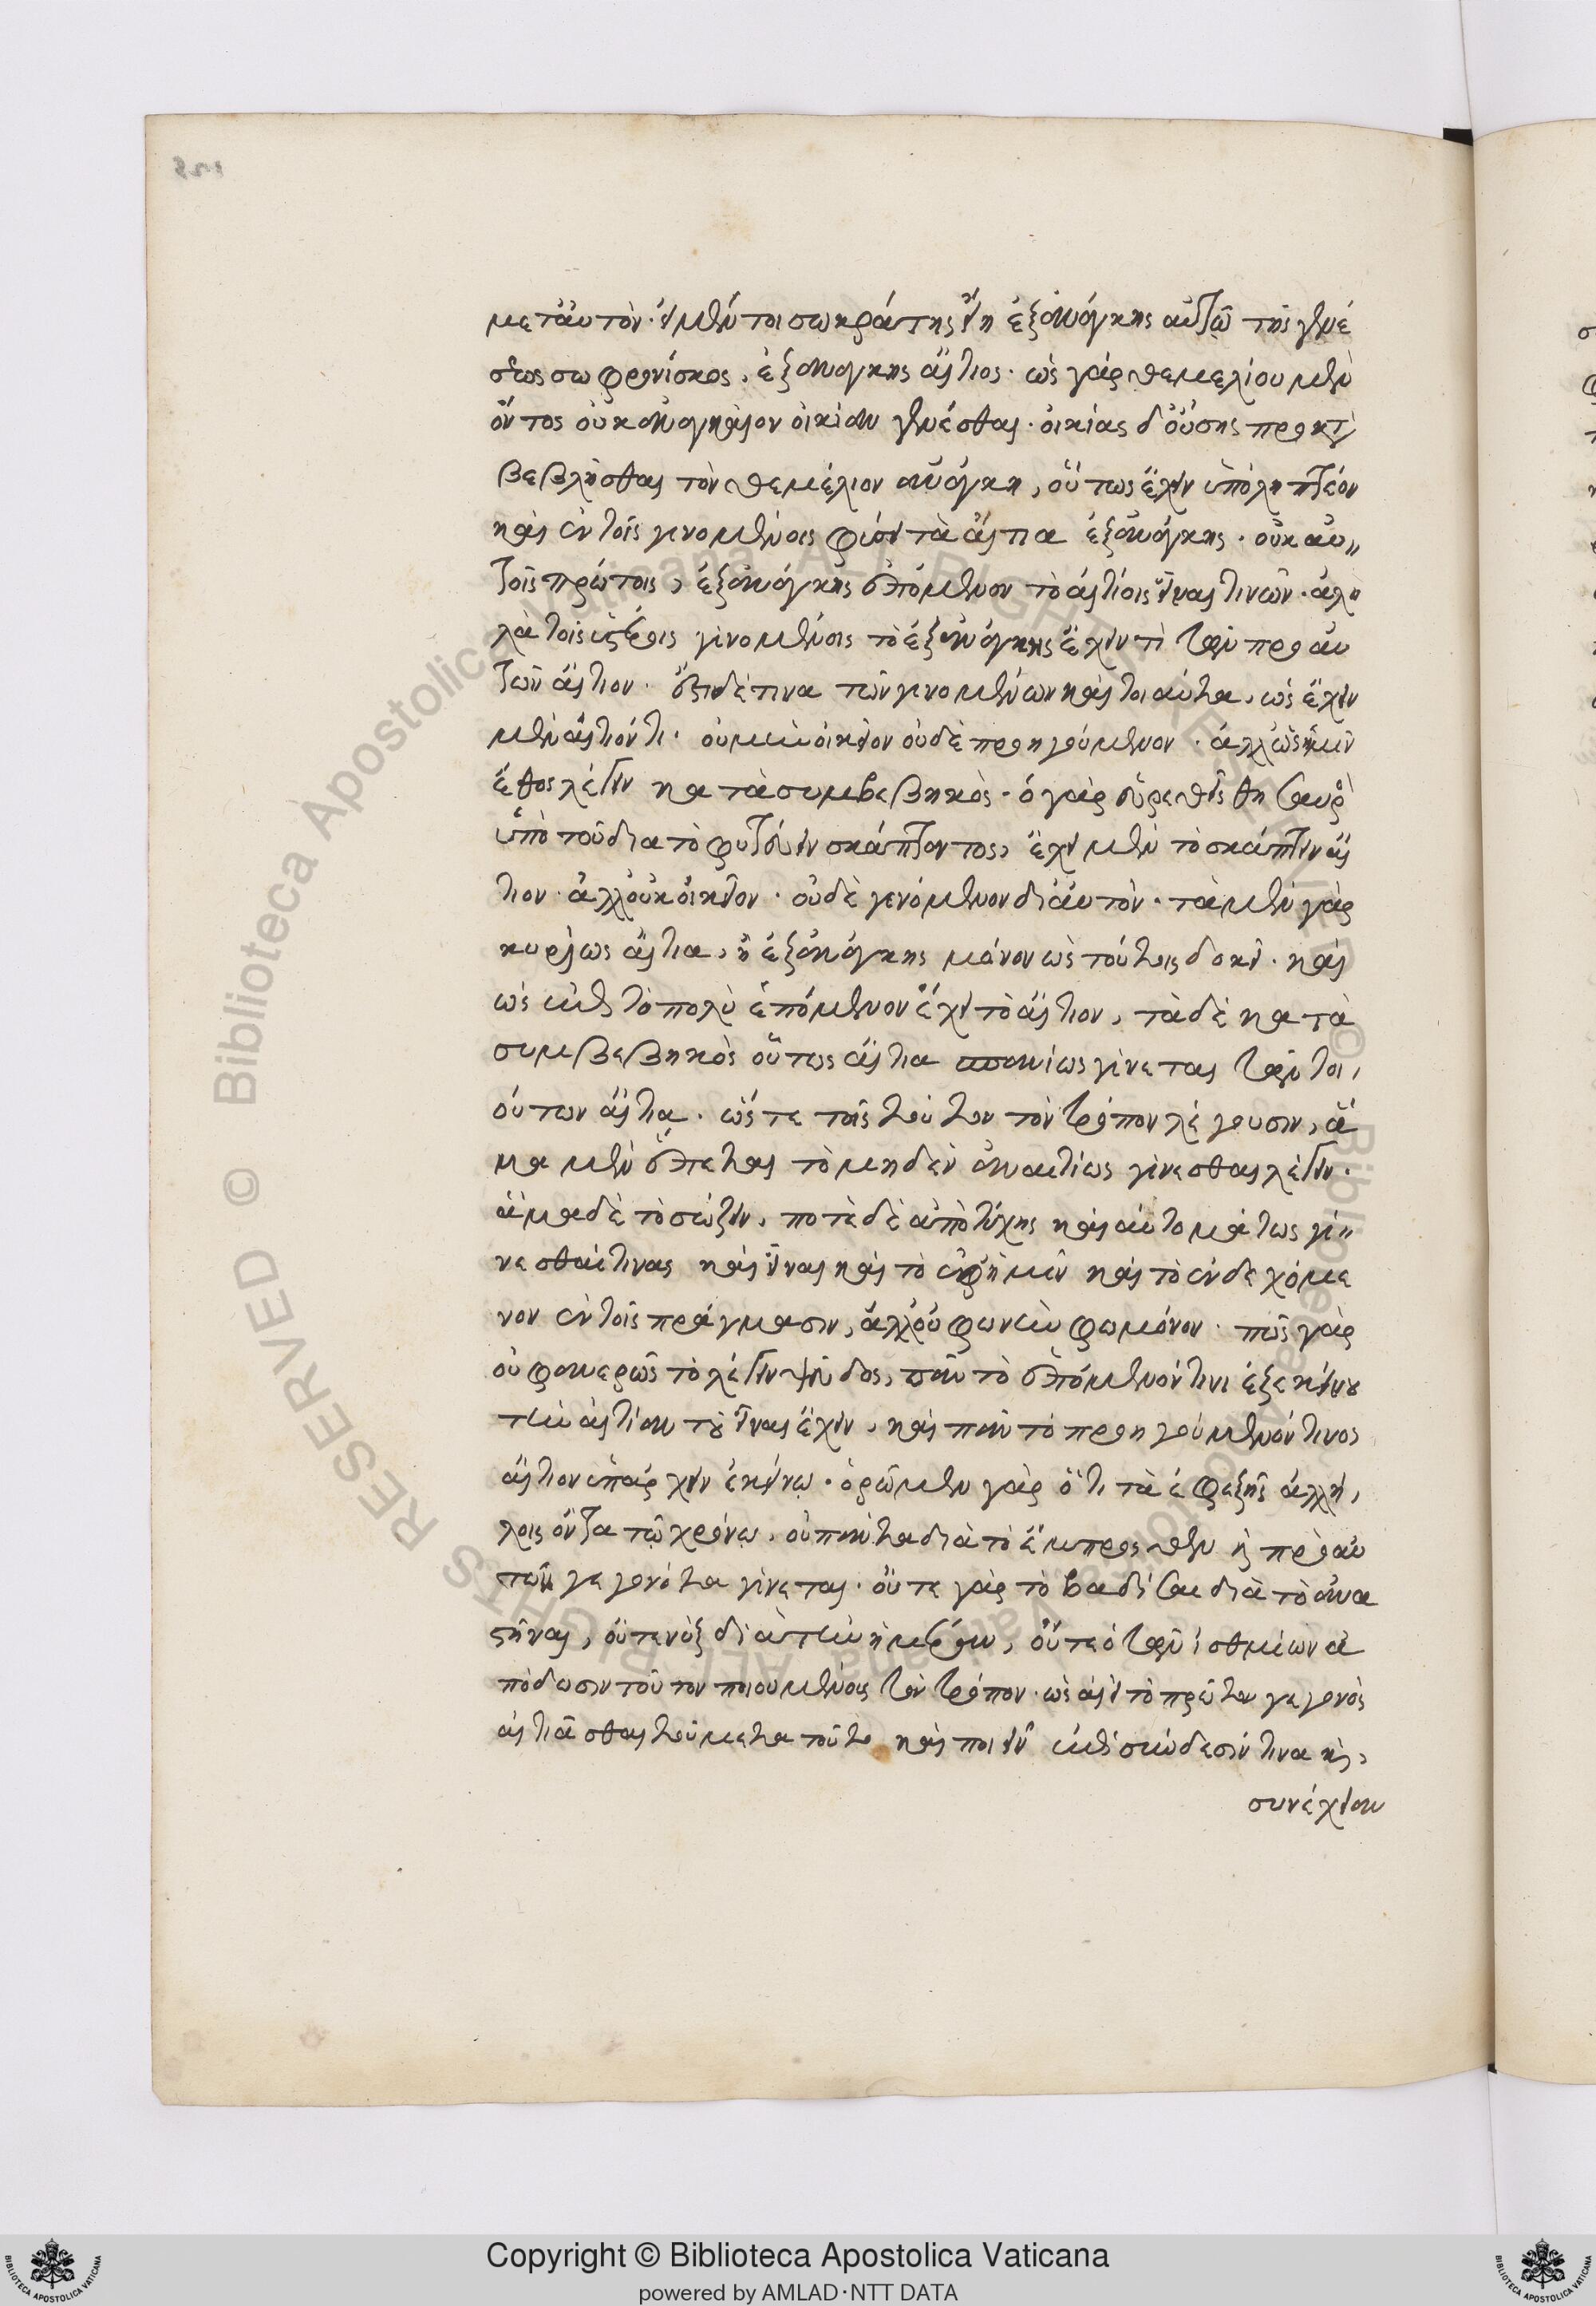 μετ' αὐτόν. εἰ μέντοι σωκράτης εἴη ἐξανάγκης αὐτῶ τῆς γενέ
σεως σωφρονίσκος, ἐξανάγκης αἴτιος. ὡς γὰρ θεμελίου μὲν
ὄντος οὐκ ἀναγκαῖον οἰκίαν γενέσθαι. οἰκίας δ' οὔσης προκατα
βεβλῆσθαι τὸν θεμέλιον ἀνάγκη, οὕτως ἔχειν ὑποληπτέον
καὶ ἐν τοῖς γινομένοις φύσει τὰ αἴτια ἐξανάγκης. οὐκ αὐ
τοῖς πρώτοις, ἐξανάγκης ἑπόμενον τὸ αἰτίοις εἶναι τινῶν. ἀλ
λὰ τοῖς ὑστέροις γινομένοις τὸ ἐξανάγκης ἔχειν τι τῶν προ αὐ
τῶν αἴτιον. ἔστι δέ τινα τῶν γινομένων καὶ τοιαῦτα, ὡς ἔχειν
μὲν αἴτιόν τι. οὐ μὴν οἰκεῖον οὐδὲ προηγούμενον. ἀλλ' ὡς ἡμῖν
ἔθος λέγειν κατὰ συμβεβηκός. ὁ γὰρ εὑρεθεὶς θησαυρὸς
ὑπὸ τοῦ διὰ τὸ φυτεύειν σκάπτοντος, ἔχει μὲν τὸ σκάπτειν αἴ
τιον. ἀλλ' οὐκ οἰκεῖον. οὐδὲ γενόμενον δι' αὐτόν. τὰ μὲν γὰρ
κυρίως αἴτια, ἢ ἐξανάγκης μόνον ὡς τούτοις δοκεῖ. καὶ
ὡς ἐπὶ τὸ πολὺ ἑπόμενον ἔχει τὸ αἴτιον, τὰ δὲ κατὰ
συμβεβηκὸς οὕτως αἴτια σπανίως γίνεται τῶν τοι
ούτων αἴτια. ὥστε τοῖς τοῦτον τὸν τρόπον λέγουσιν, ἅ
μα μὲν ἕπεται τὸ μηδὲν ἀναιτίως γίνεσθαι λέγειν.
ἅμα δὲ τὸ σώζειν, ποτὲ δὲ ἀπὸ τύχης καὶ αὐτομάτως γί
νεσθαί τινας καὶ εἶναι καὶ τὸ ἐφ' ἡμῖν καὶ τὸ ἐνδεχόμε
νον ἐν τοῖς πράγμασιν, ἀλλ' οὐ φωνὴν φωμόνον. πῶς γὰρ
οὐ φανερῶς τὸ λέγειν ψεῦδος, πᾶν τὸ ἑπόμενόν τινι ἐξ ἐκείνου
τὴν αἰτίαν τοῦ εἶναι ἔχειν, καὶ πᾶν τὸ προηγούμενόν τινος
αἴτιον ὑπάρχειν ἐκείνῳ. ὁρῶμεν γὰρ ὅτι τὰ ἐφεξῆς ἀλλή
λοις ὄντα τῷ χρόνῳ, οὐ πάντα διὰ τὸ ἔμπροσθεν ἢ πρὸ αὐ
τῶν γεγονότα γίνεται. οὔτε γὰρ τὸ βαδίσαι διὰ τὸ ἀνα
στῆναι, οὔτε νὺξ διὰ τὴν ἡμέραν, οὔτε ὁ τῶν ἰσθμίων ἀ
πόδωσιν τοῦτον ποιουμένοις τὸν τρόπον. ὡς ἀεὶ τὸ πρῶτον γεγονὸς
αἰτιᾶσθαι τοῦ μετὰ τοῦτο καὶ ποιεῖν ἐπισύνδεσίν τινα καὶ
συνέχειαν